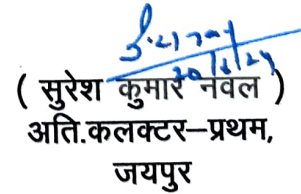 20/6/24
( सुरेश कुमार नवल )
अति.कलक्टर–प्रथम,
जयपुर